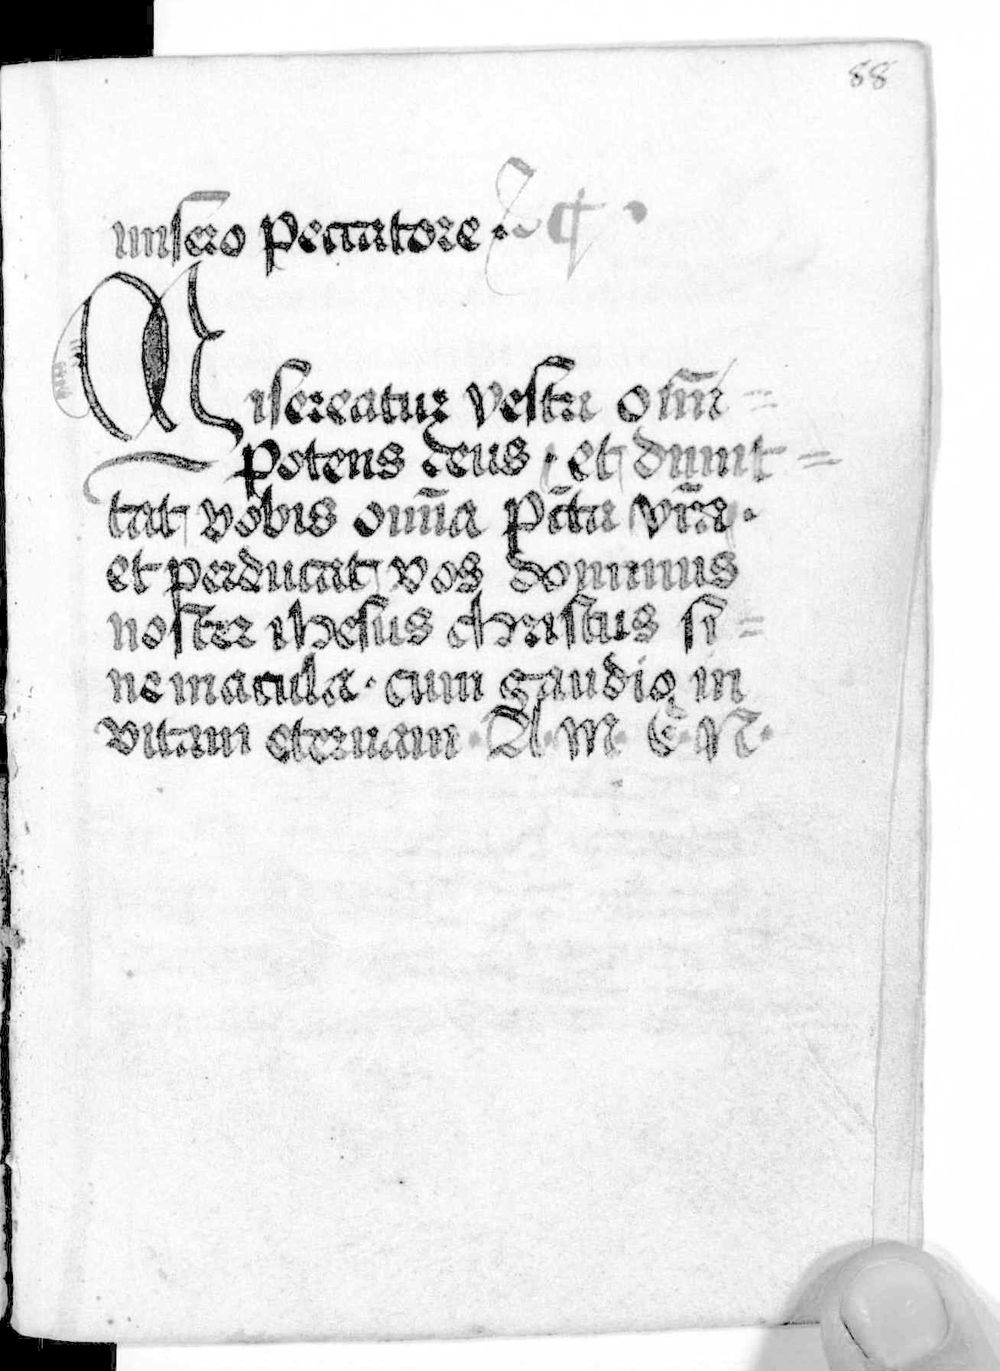 88
misero peccatore
Misereatur vestri om̄i=
potens deus · et dimit=
tat vobis om̄ia pc̄ta vr̄a ·
et perducat vos dominus
noster ihesus christus si=
ne macula · cum gaudio in
vitam eternam · A · M · E · N ·